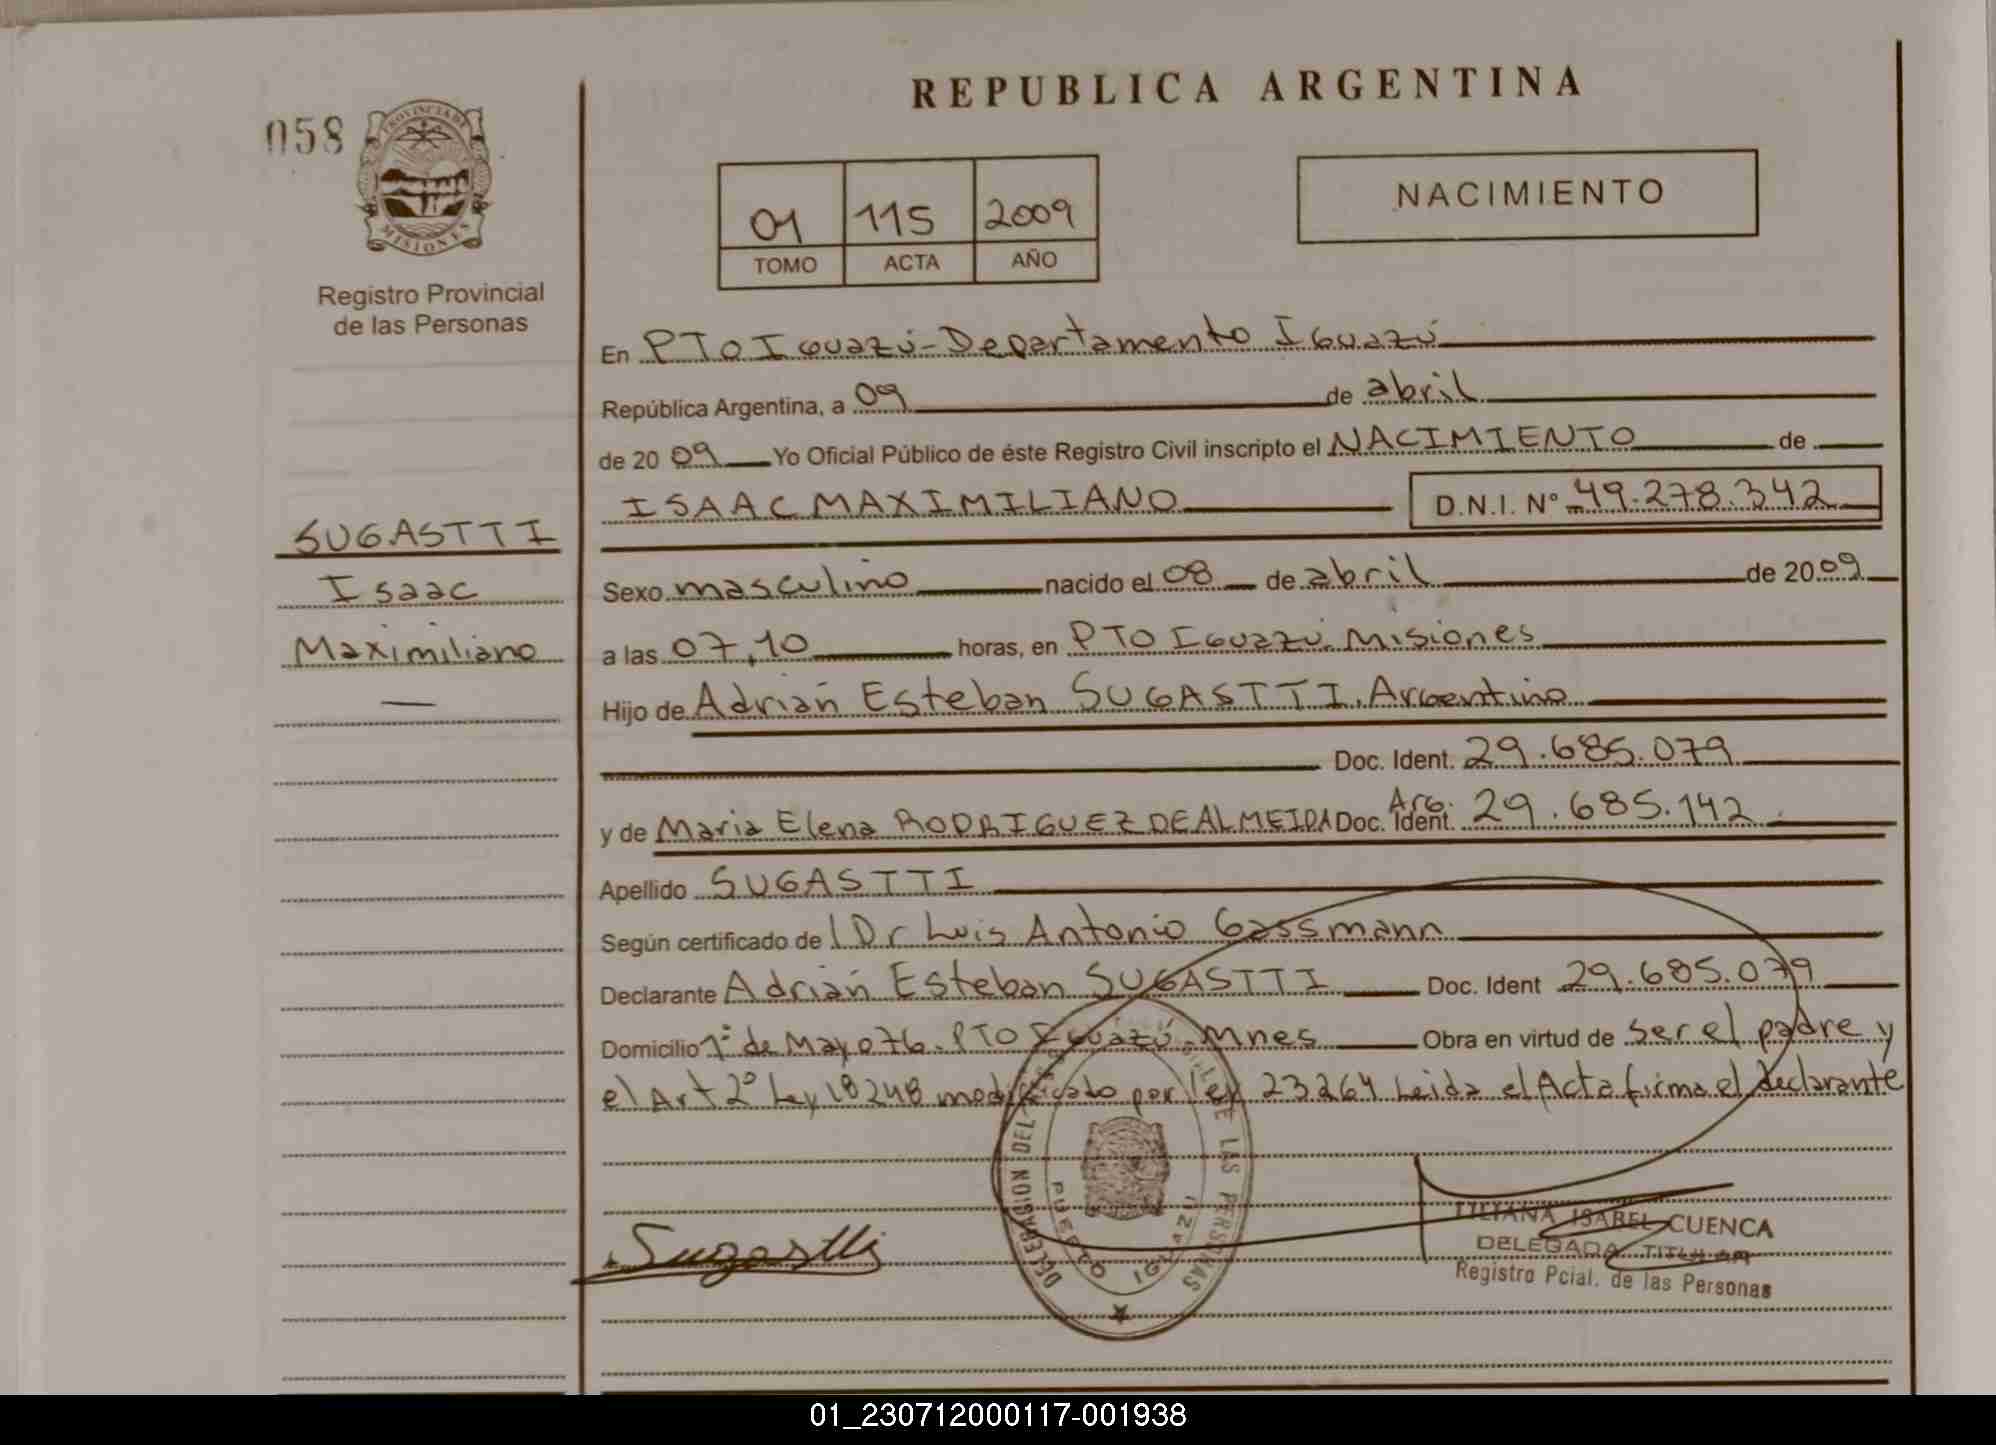 REPUBLICA ARGENTINA
058
PROVINCIA DE
MISIONES
Registro Provincial
de las Personas
01 115 2009
TOMO ACTA AÑO
NACIMIENTO
En PTO Iguazú-Departamento Iguazú
República Argentina, a 09 de abril
de 20 09 Yo Oficial Público de éste Registro Civil inscripto el NACIMIENTO de
ISAAC MAXIMILIANO D.N.I. Nº 49.278.342
SUGASTTI
Isaac
Maximiliano
Sexo masculino nacido el 08 de abril de 2009
a las 07,10 horas, en PTO Iguazú. Misiones
Hijo de Adrián Esteban SUGASTTI, Argentino
Doc. Ident. 29.685.079
y de Maria Elena RODRIGUEZ DE ALMEIDA Doc. Ident. Arg. 29.685.142
Apellido SUGASTTI
Según certificado de l Dr Luis Antonio Gassmann
Declarante Adrián Esteban SUGASTTI Doc. Ident 29.685.079
Domicilio 1º de Mayo 76. PTO Iguazú. Mnes Obra en virtud de ser el padre y
el Art 2º Ley 18248 modificado por ley 23264 Leida el Acta firma el declarante
Sugastti
DELEGACION DEL DE LAS PERSONAS
PUERTO IGUAZU
LILIANA ISABEL CUENCA
DELEGADA TITULAR
Registro Pcial. de las Personas
01_230712000117-001938